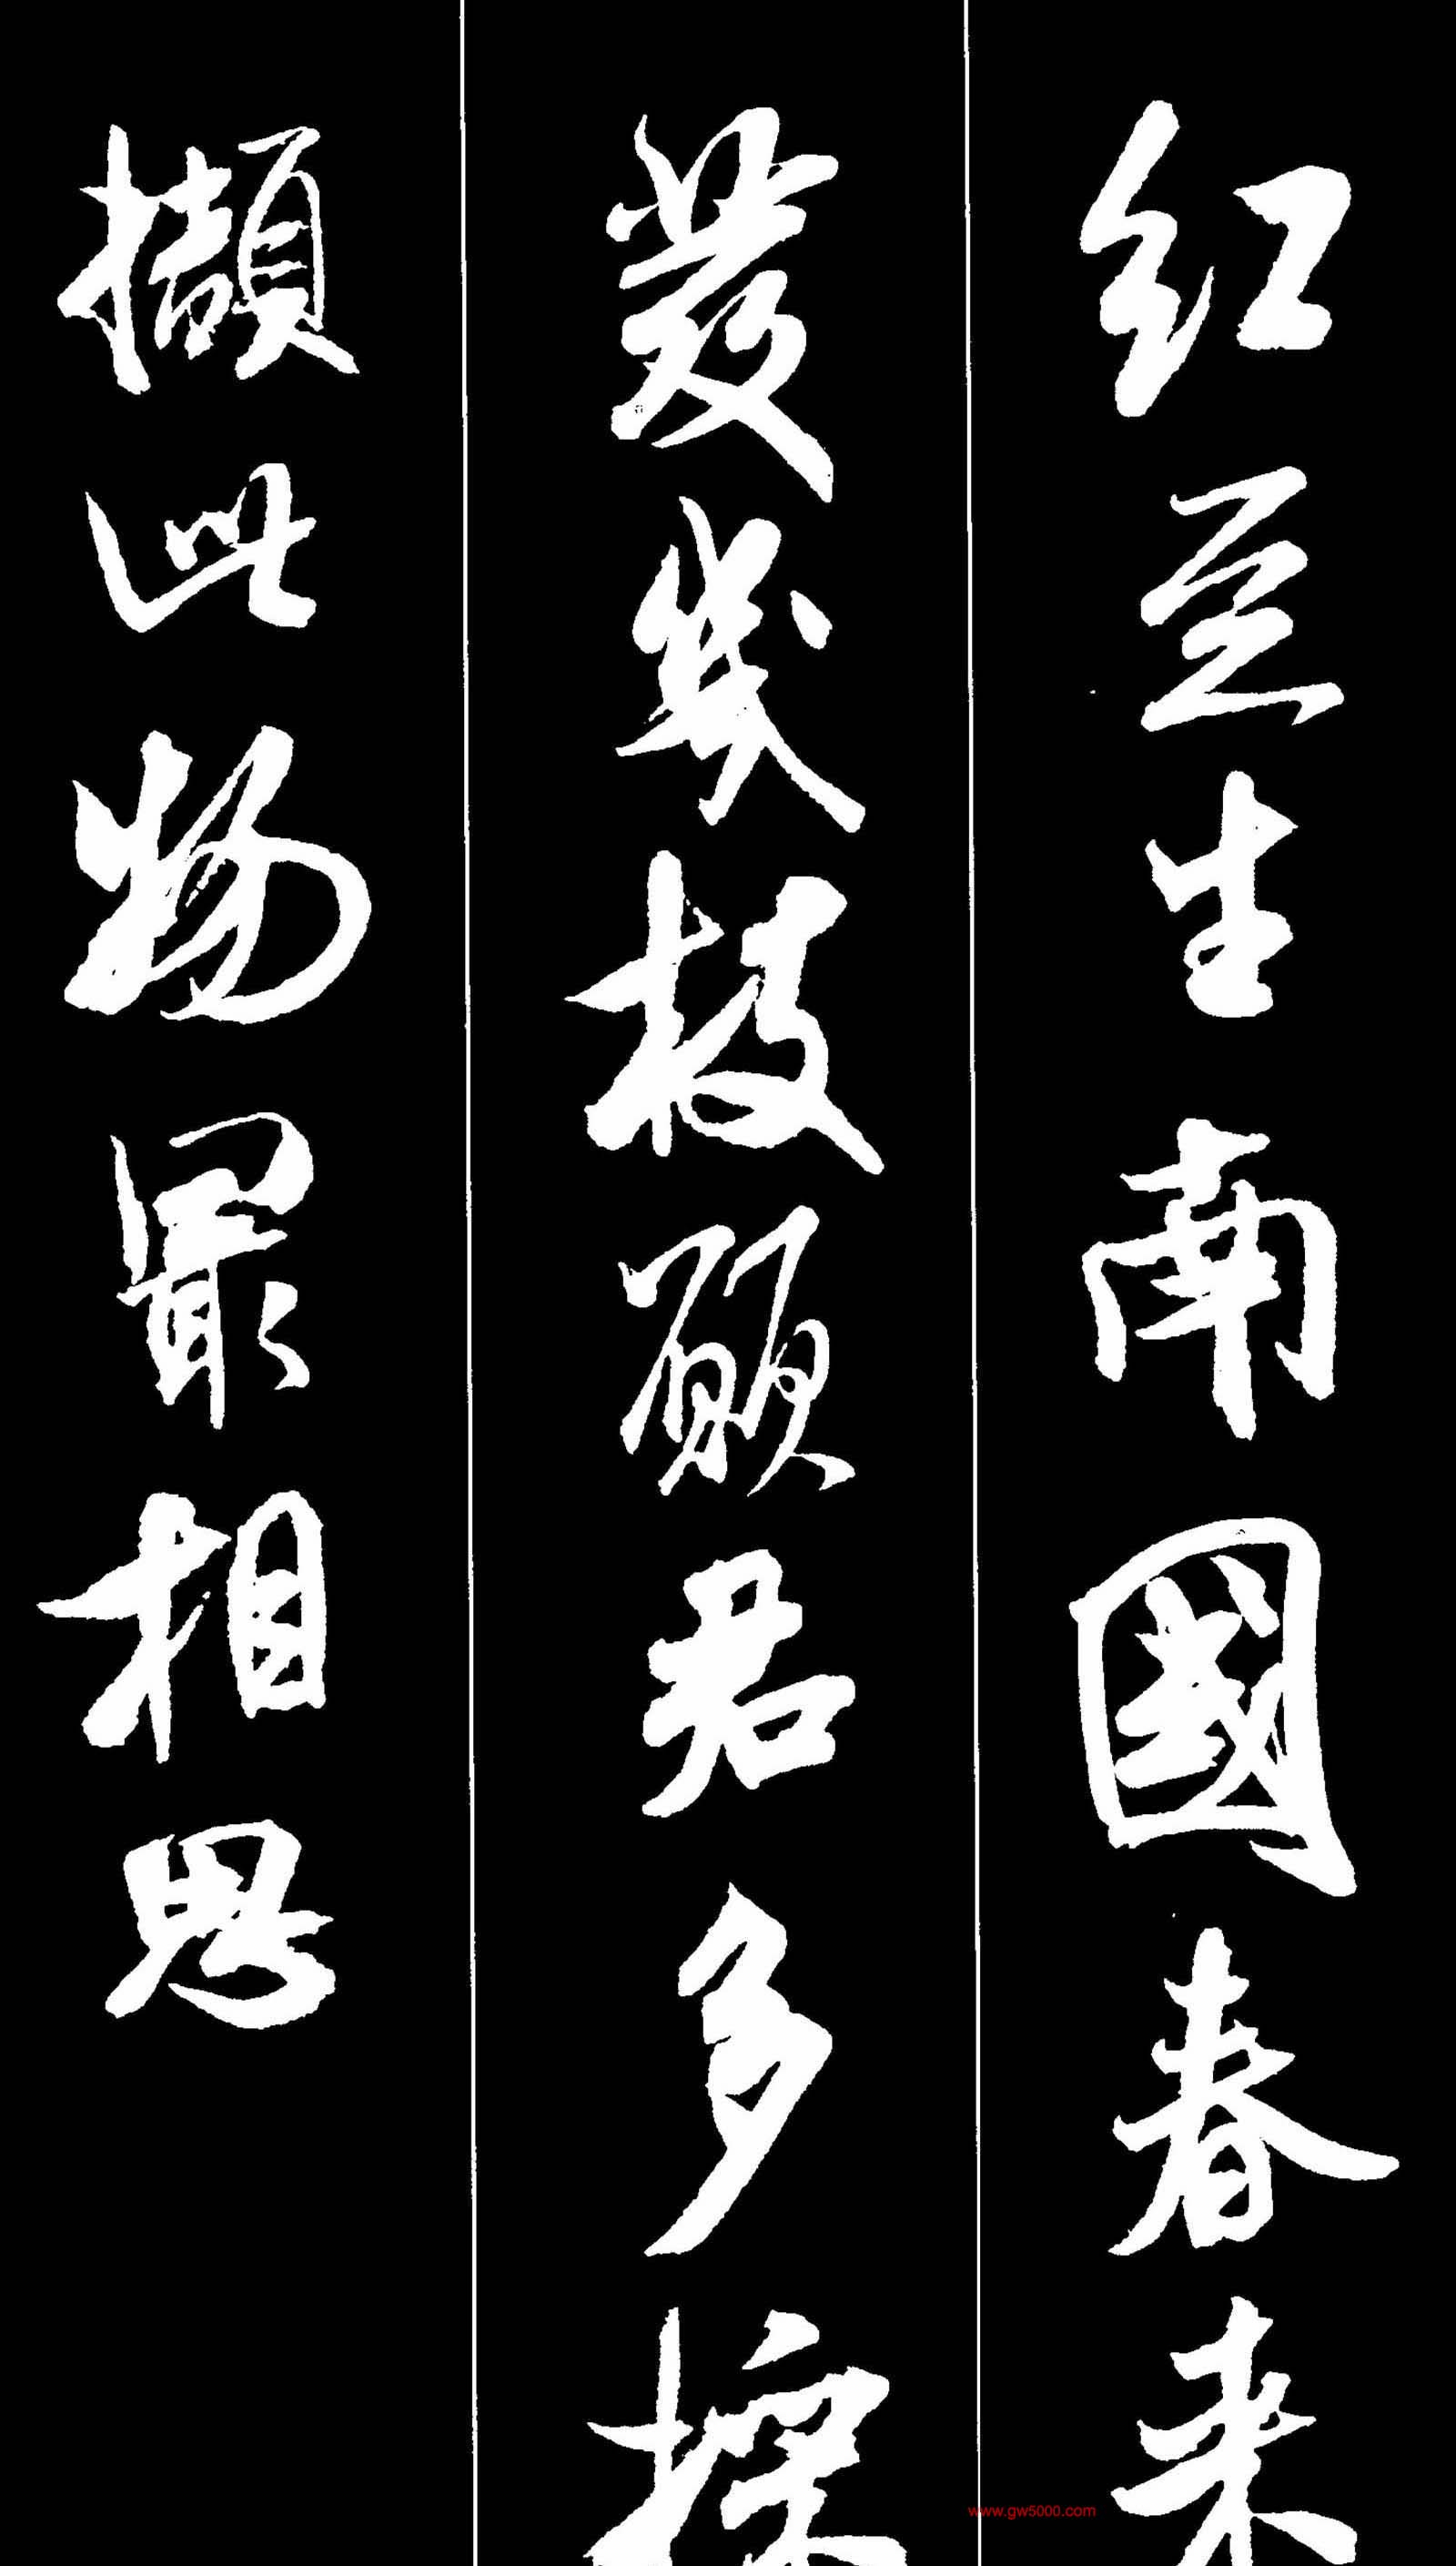 红豆生南國春来
發幾枝願君多採
擷此物最相思
www.gw5000.com